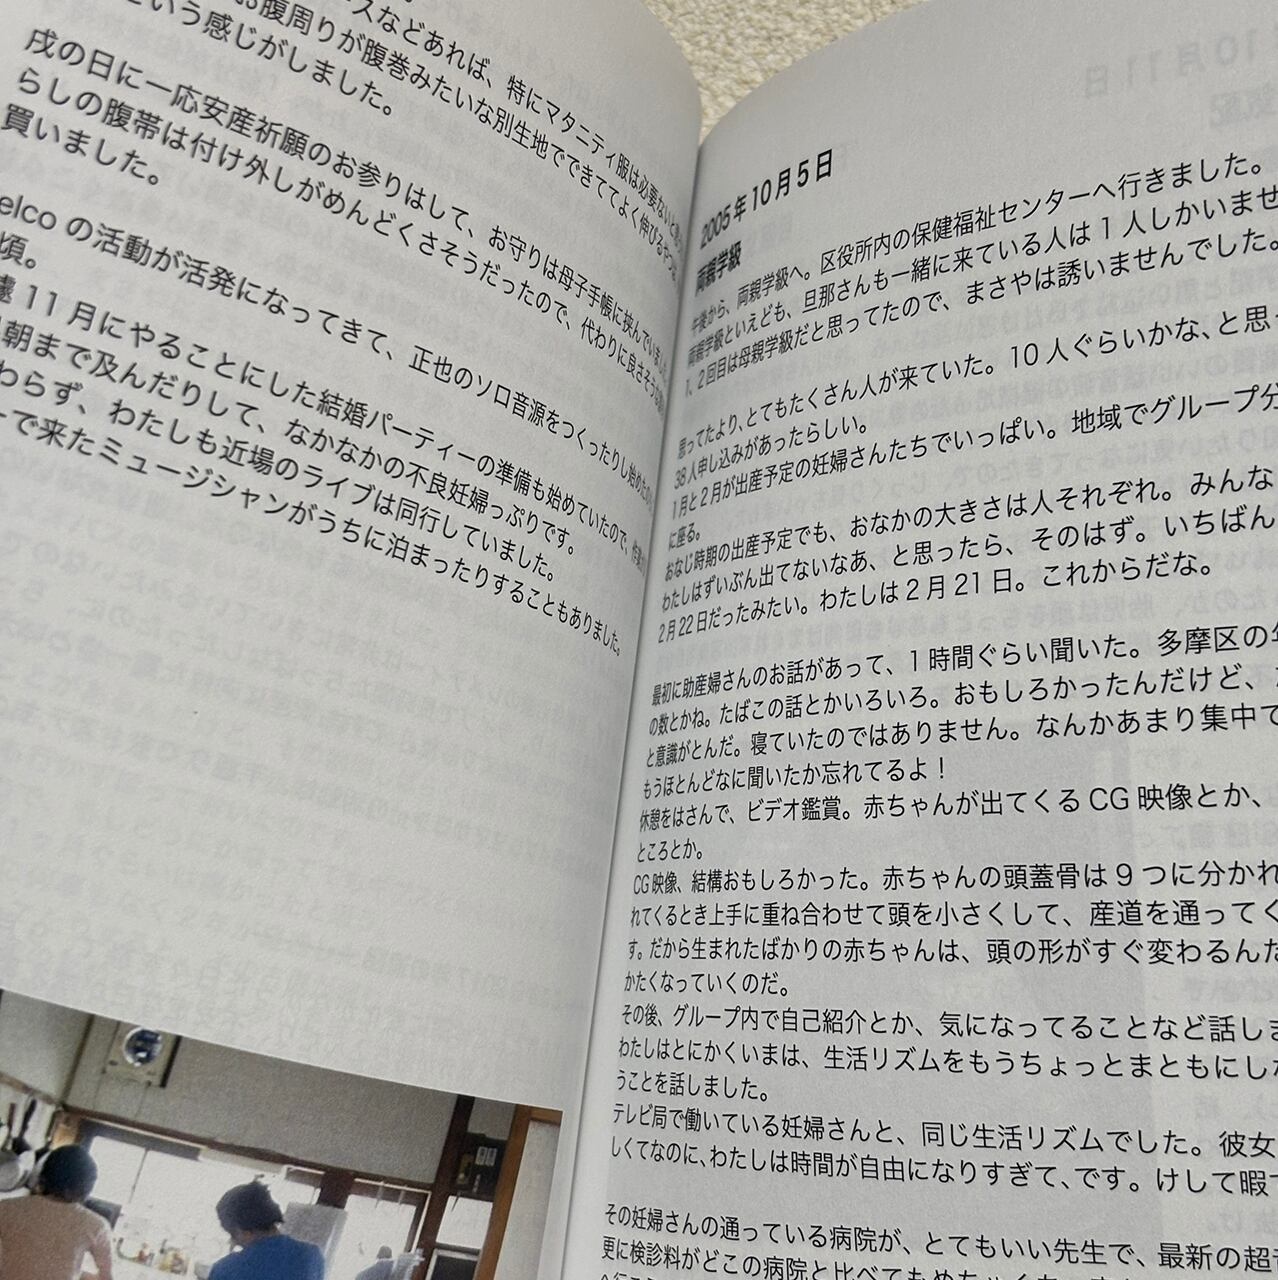 スなどあれば、特にマタニティ服は必要ないと思
お腹周りが腹巻みたいな別生地でできててよく伸びるやつ
という感じがしました。
戌の日に一応安産祈願のお参りはして、お守りは母子手帳に挟んでいました。
らしの腹帯は付け外しがめんどくさそうだったので、代わりに良さそうな
買いました。
elcoの活動が活発になってきて、正也のソロ音源をつくったりし始めたの
頃。
11月にやることにした結婚パーティーの準備も始めていたので、作業
朝まで及んだりして、なかなかの不良妊婦っぷりです。
わらず、わたしも近場のライブは同行していました。
ーで来たミュージシャンがうちに泊まったりすることもありました。
2005年10月5日
両親学級
午後から、両親学級へ。区役所内の保健福祉センターへ行きました。
両親学級といえども、旦那さんも一緒に来ている人は1人しかいませ
1、2回目は母親学級だと思ってたので、まさやは誘いませんでした。
思ってたより、とてもたくさん人が来ていた。10人ぐらいかな、と思っ
38人申し込みがあったらしい。
1月と2月が出産予定の妊婦さんたちでいっぱい。地域でグループ分
に座る。
おなじ時期の出産予定でも、おなかの大きさは人それぞれ。みんな
わたしはずいぶん出てないなあ、と思ったら、そのはず。いちばん
2月22日だったみたい。わたしは2月21日。これからだな。
最初に助産婦さんのお話があって、1時間ぐらい聞いた。多摩区の
の数とかね。たばこの話とかいろいろ。おもしろかったんだけど、
と意識がとんだ。寝ていたのではありません。なんかあまり集中で
もうほとんどなに聞いたか忘れてるよ！
休憩をはさんで、ビデオ鑑賞。赤ちゃんが出てくるCG映像とか、
ところとか。
CG映像、結構おもしろかった。赤ちゃんの頭蓋骨は9つに分かれ
れてくるとき上手に重ね合わせて頭を小さくして、産道を通ってく
す。だから生まれたばかりの赤ちゃんは、頭の形がすぐ変わるんだ
かたくなっていくのだ。
その後、グループ内で自己紹介とか、気になってることなど話しま
わたしはとにかくいまは、生活リズムをもうちょっとまともにしな
うことを話しました。
テレビ局で働いている妊婦さんと、同じ生活リズムでした。彼女
しくてなのに、わたしは時間が自由になりすぎて、です。けして暇で
その妊婦さんの通っている病院が、とてもいい先生で、最新の超音
更に検診料がどこの病院と比べてもめちゃ